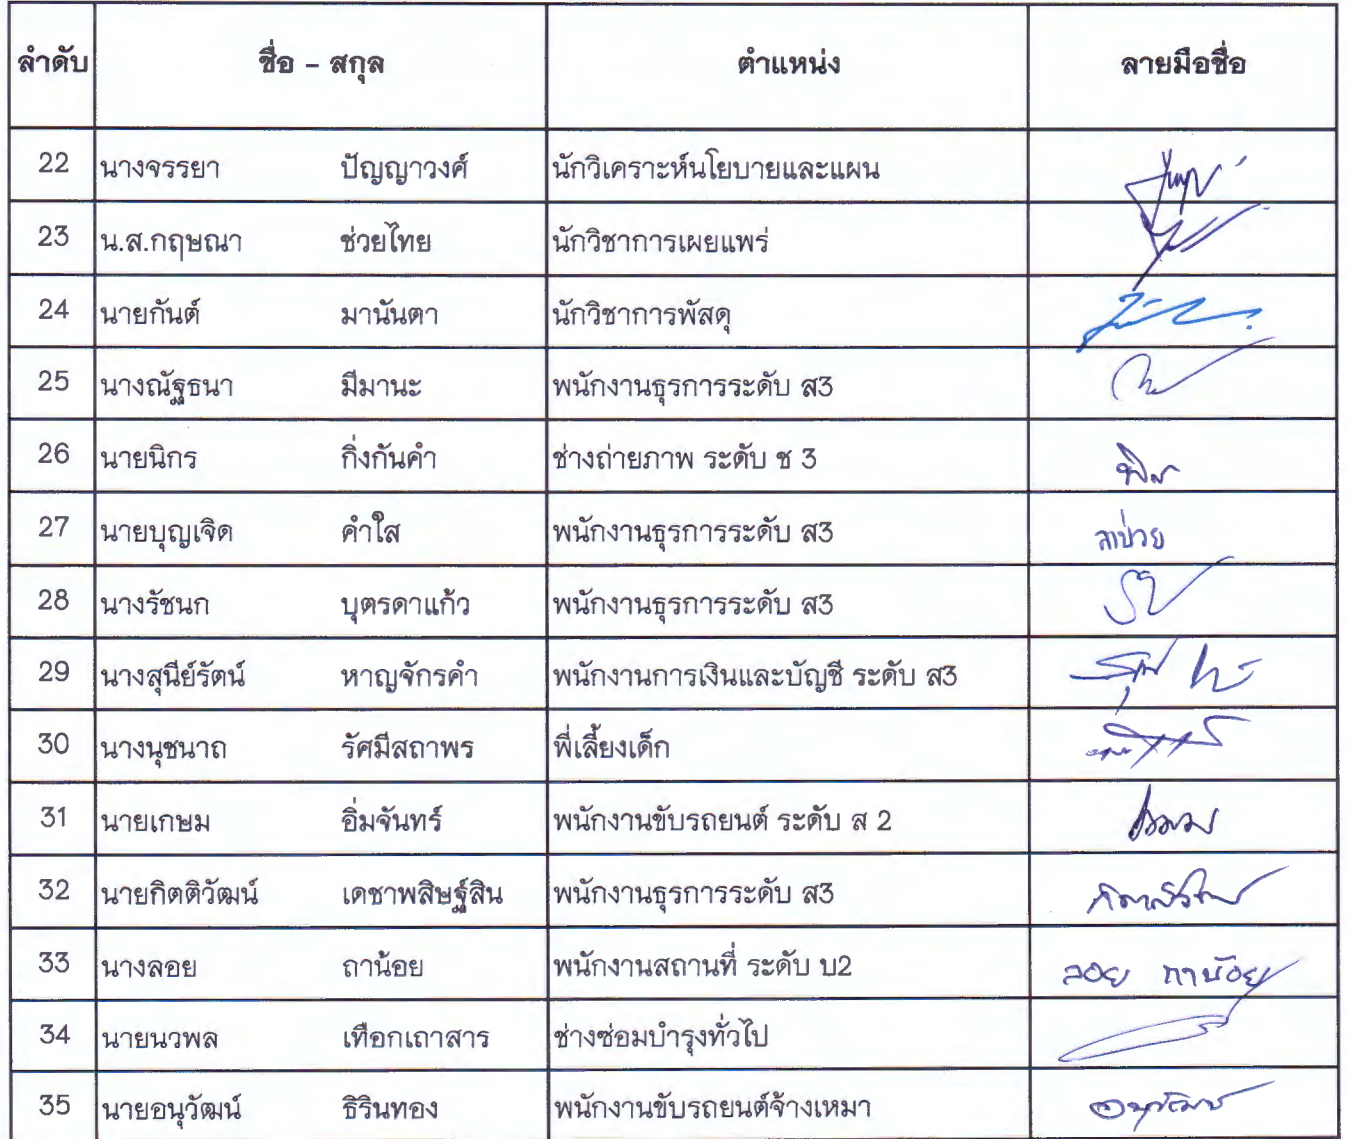 ลำดับ ชื่อ - สกุล ตำแหน่ง ลายมือชื่อ
22 นางจรรยา ปัญญาวงศ์ นักวิเคราะห์นโยบายและแผน
23 น.ส.กฤษณา ช่วยไทย นักวิชาการเผยแพร่
24 นายกันต์ มานันตา นักวิชาการพัสดุ
25 นางณัฐธนา มีมานะ พนักงานธุรการระดับ ส3
26 นายนิกร กิ่งกันคำ ช่างถ่ายภาพ ระดับ ช 3
27 นายบุญเจิด คำใส พนักงานธุรการระดับ ส3 ลาป่วย
28 นางรัชนก บุตรดาแก้ว พนักงานธุรการระดับ ส3
29 นางสุนีย์รัตน์ หาญจักรคำ พนักงานการเงินและบัญชี ระดับ ส3
30 นางนุชนาถ รัศมีสถาพร พี่เลี้ยงเด็ก
31 นายเกษม อิ่มจันทร์ พนักงานขับรถยนต์ ระดับ ส 2
32 นายกิตติวัฒน์ เดชาพสิษฐ์สิน พนักงานธุรการระดับ ส3
33 นางลอย ถาน้อย พนักงานสถานที่ ระดับ บ2 ลอย ถาน้อย
34 นายนวพล เทือกเถาสาร ช่างซ่อมบำรุงทั่วไป
35 นายอนุวัฒน์ ธิรินทอง พนักงานขับรถยนต์จ้างเหมา